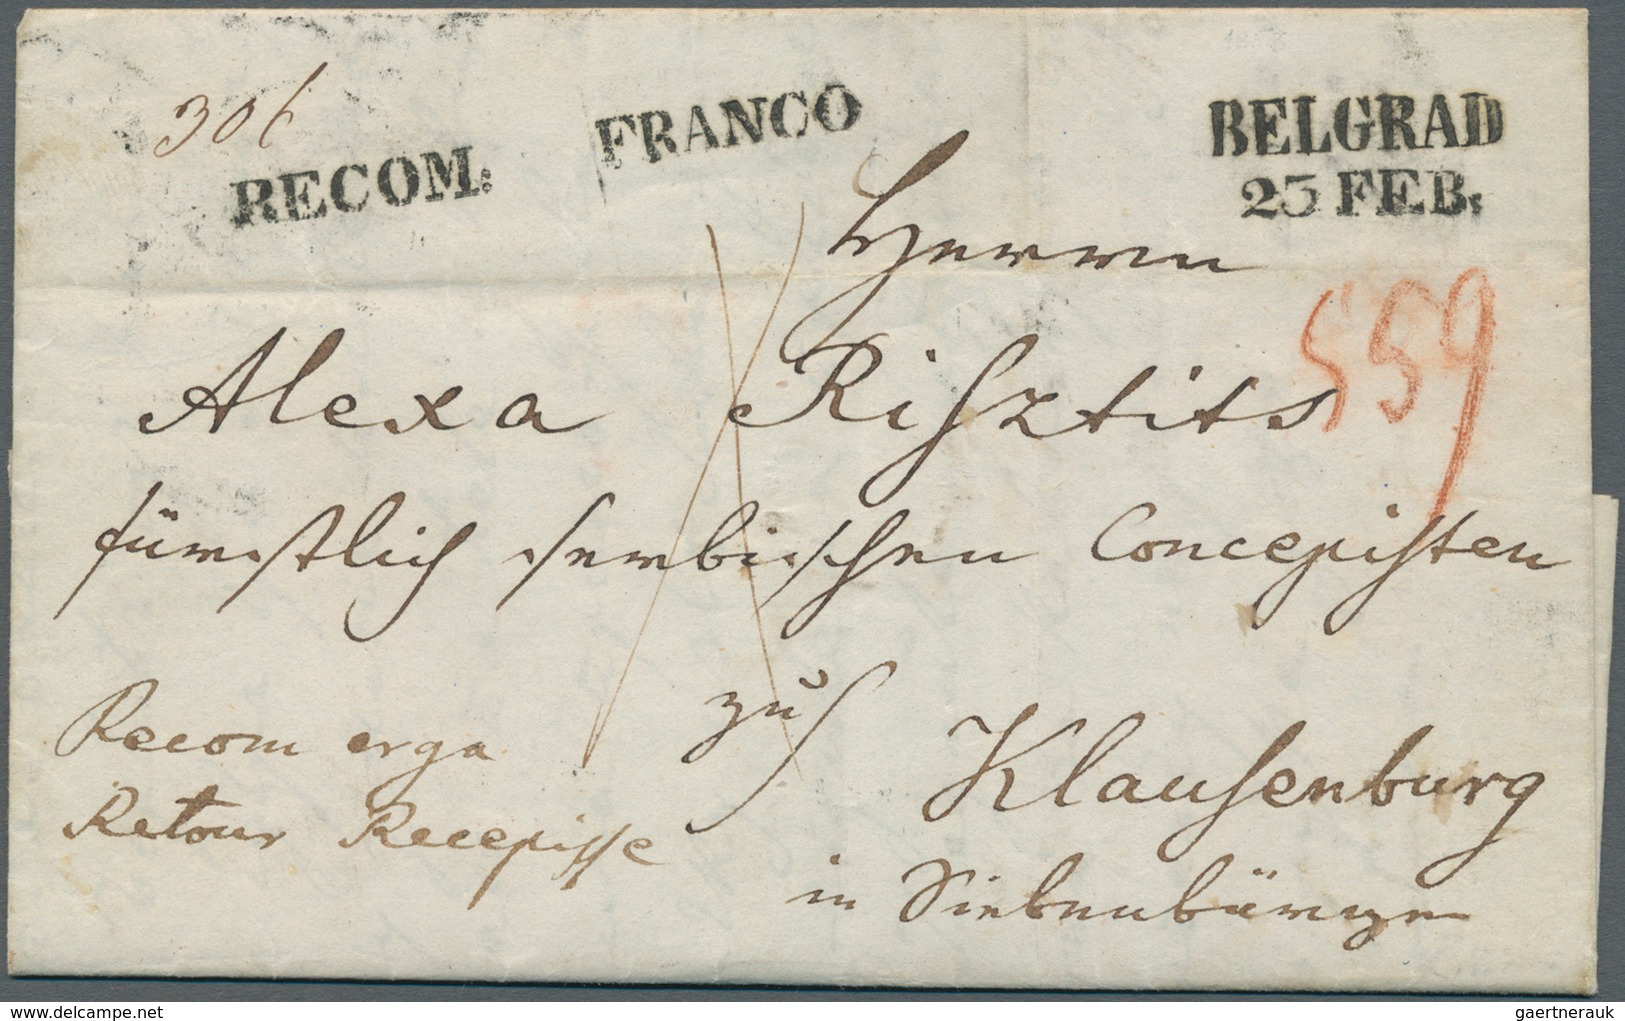 306
RECOM:
FRANCO
BELGRAD
25 FEB.
Herrn
559
Alexa Risztits
fürstlich serbischen Concepisten
zu
Klausenburg
in Siebenbürgen
Recom erga
Retour Recepisse
www.delcampe.net
gaertnerauk